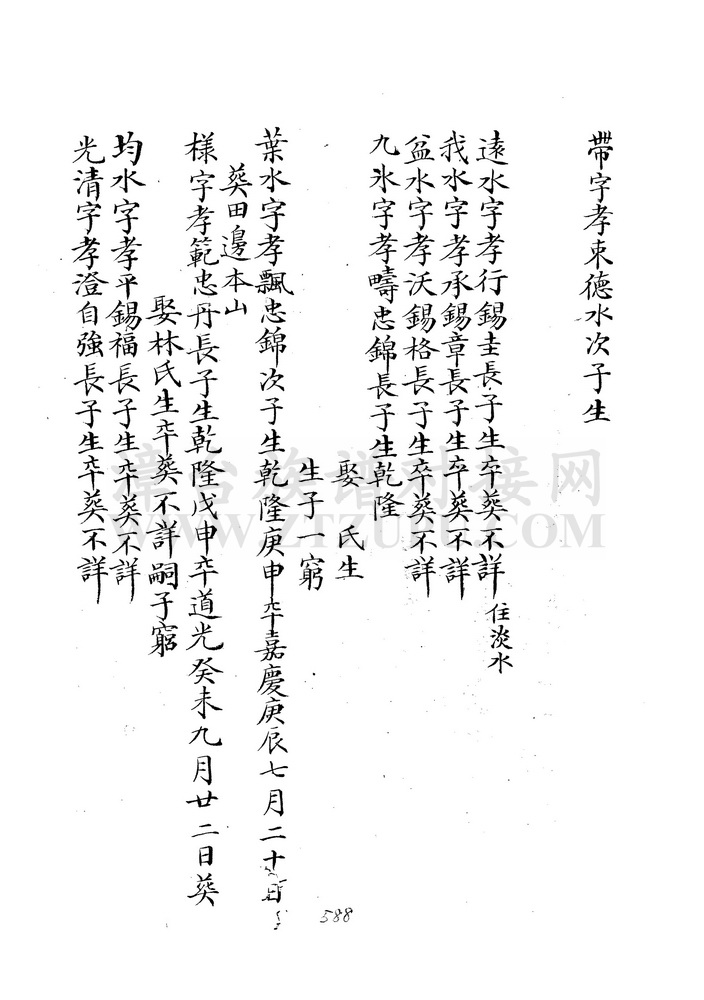 帶字孝束德水次子生
遠水字孝行錫圭長子生卒葬不詳 住淡水
我水字孝承錫章長子生卒葬不詳
盆水字孝沃錫格長子生卒葬不詳
九氷字孝疇忠錦長子生乾隆
娶 氏生
生子一窮
葉水字孝飄忠錦次子生乾隆庚申卒嘉慶庚辰七月二十
葬田邊本山
様字孝範忠丹長子生乾隆戊申卒道光癸未九月廿二日葬
娶林氏生卒葬不詳嗣子窮
均水字孝平錫福長子生卒葬不詳
光清字孝澄自強長子生卒葬不詳
588
WWW.ZTZUPU.COM